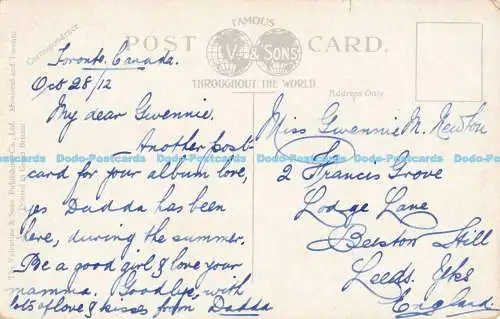 FAMOUS
POST CARD.
V. & SONS
THROUGHOUT THE WORLD.
Correspondence
Address Only.
The Valentine & Sons Publishing Co., Ltd. Montreal and Toronto.
Printed in Great Britain
Toronto. Canada.
Oct 28/12
My dear Gwennie.
Another post-
card for your album love,
yes Dadda has been
here, during the summer.
Be a good girl & love your
mamma. Goodbye, with
lots of love & kisses from Dadda
Miss Gwennie M. Newton
2 Francis Grove
Lodge Lane
Beeston Hill
Leeds. Yks
England.
Dodo-Postcards Dodo-Postcards Dodo-Postcards Dodo-Postcards